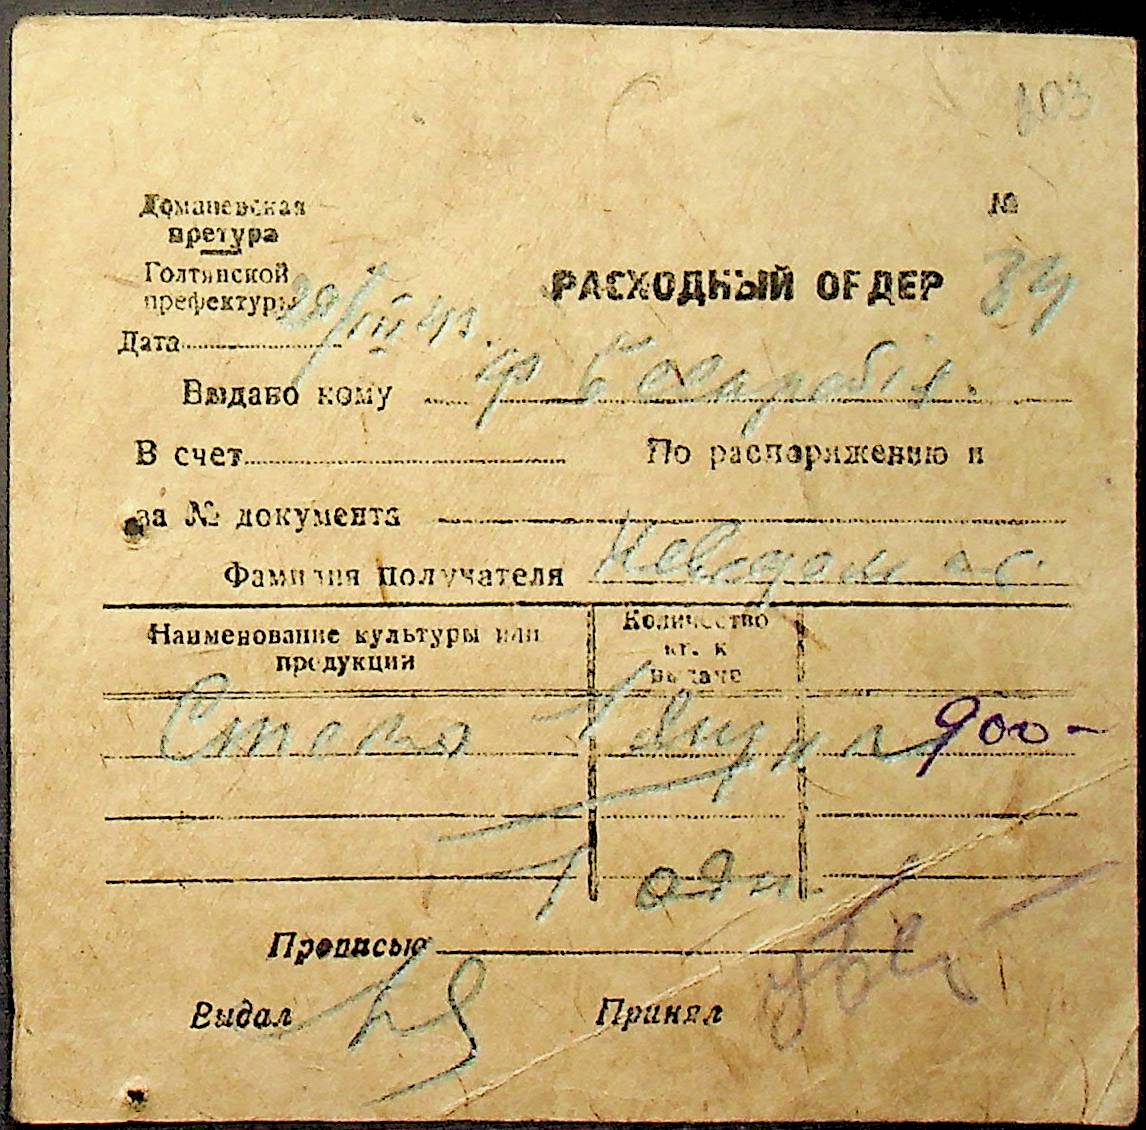 203
Доманевская
претура
Голтянской
префектуры
№
РАСХОДНЫЙ ОРДЕР 34
Дата 28/III 43.
Выдано кому ф Бесарабія.
В счет По распоряжению и
за № документа
Фамилия получателя
Наименование культуры или продукции
Количество кг. к выдаче
Стекло 1 ящик 900-
1 один.
Прописью
Выдал
Принял